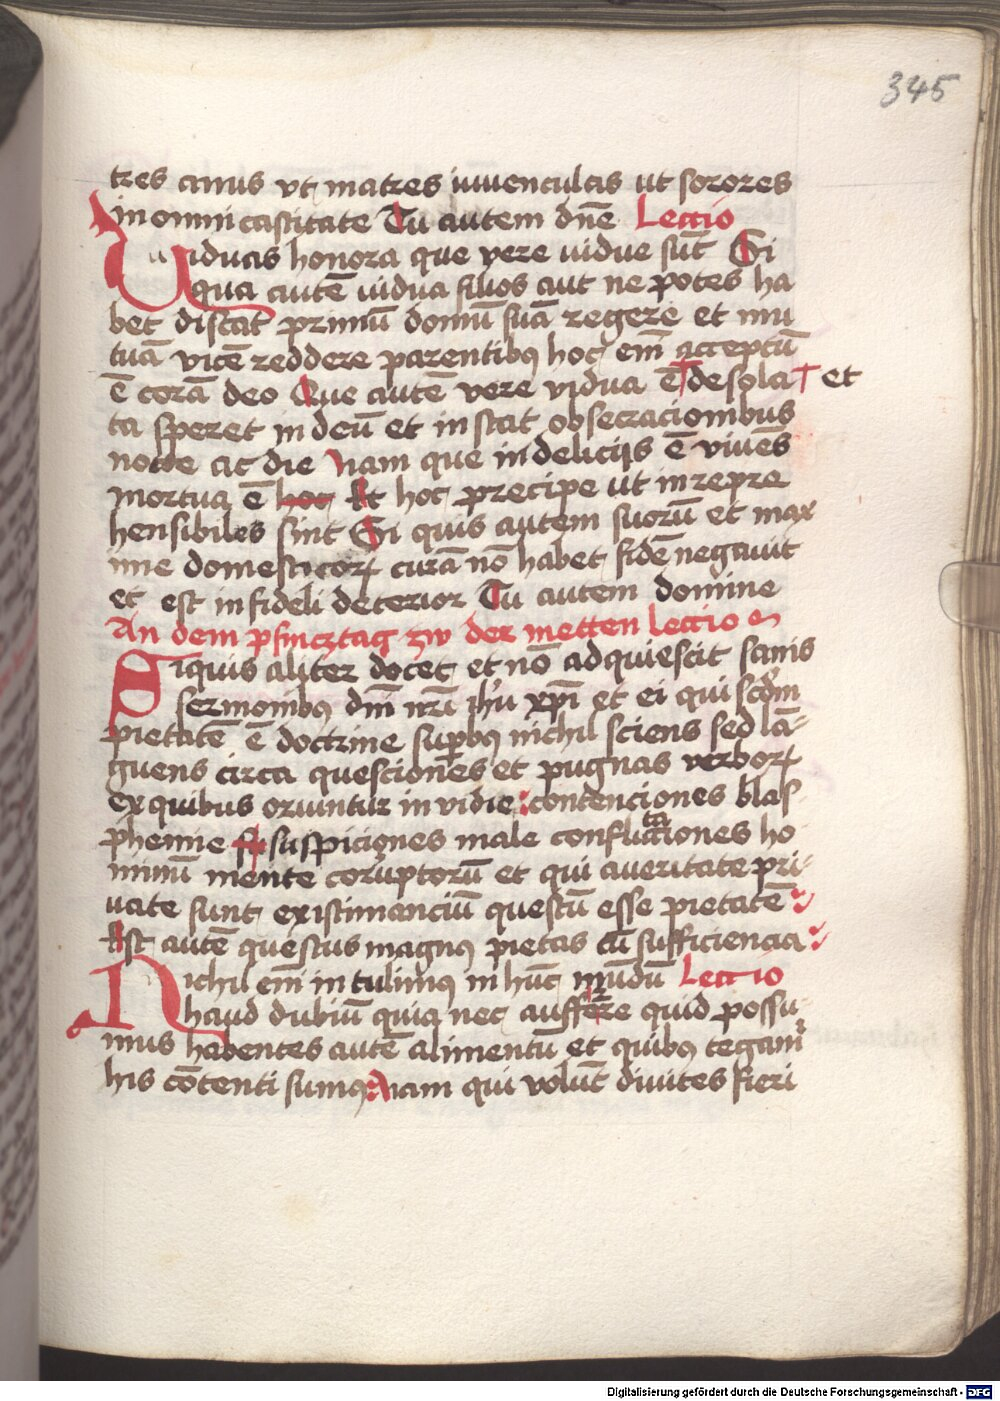 345
tres anus vt matres iuuenculas ut sorores
in omni castitate Tu autem dn̄e Lectio
Uiduas honora que vere uidue sūt Si
qua autē uidua filios aut ne potes ha
bet discat primū domū suā regere et mu
tuā vicē reddere parentibꝫ hoc em̄ acceptū
ē corā deo Que autē vere vidua ē desola et
ta speret in deū et instat obsecracionibus
nocte ac die Nam que in delicijs ē viuēs
mortua ē hoc Et hoc precipe ut inrepre
hensibiles sint Si quis autem suorū et max
ime domesticoꝝ curā nō habet fidē negauit
et est infideli deterior Tu autem domine
An dem pfincztag zw der metten lectio
Siquis aliter docet et nō adquiescit sanis
sermonibꝫ dn̄i nr̄i ih̄u xp̄i et ei qui scd̄m
pietatē ē doctrine supbꝫ nichil sciens sed lā-
guens circa questiones et pugnas verboꝝ
ex quibus oriuntur invidie contenciones blas
phemie suspiciones male conflictaciones ho
minū mente coruptorū et qui a veritate pri-
uate sunt existimanciū questū esse pietatē
Est autē questus magnꝫ pietas cū sufficiencia
Nichil em̄ intulimꝫ in hūc mūdū Lectio
haud dubiū quia nec aufferre quid possu
mus habentes autē alimentū et quibꝫ tegam̄
his cōtenti sumꝫ Nam qui volūt diuites fieri
Digitalisierung gefördert durch die Deutsche Forschungsgemeinschaft - DFG